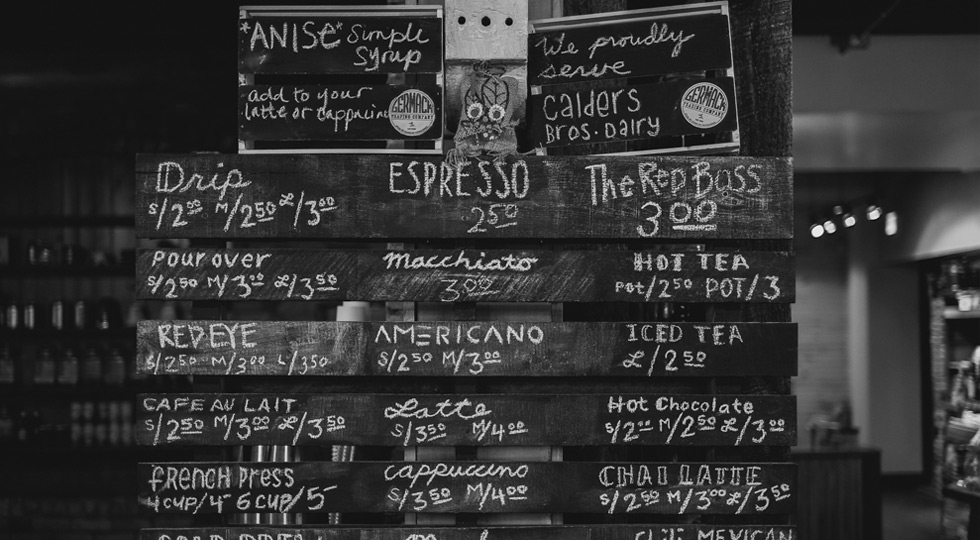 *ANISE* Simple
Syrup
add to your
latte or cappuccino
GERMACK
TRADING COMPANY
We proudly
serve
Calders
Bros. Dairy
GERMACK
TRADING COMPANY
Drip
S/2⁰⁰ M/2⁵⁰ L/3⁰⁰
ESPRESSO
2⁵⁰
The Red Boss
3⁰⁰
Pour over
S/2⁵⁰ M/3⁰⁰ L/3⁵⁰
Macchiato
3⁰⁰
HOT TEA
Pot/2⁵⁰ POT/3
REDEYE
S/2⁵⁰ M/3⁰⁰ L/3⁵⁰
AMERICANO
S/2⁵⁰ M/3⁰⁰
ICED TEA
L/2⁵⁰
CAFE AU LAIT
S/2⁵⁰ M/3⁰⁰ L/3⁵⁰
Latte
S/3⁵⁰ M/4⁰⁰
Hot Chocolate
S/2⁰⁰ M/2⁵⁰ L/3⁰⁰
FRENCH PRESS
4 CUP/4⁻ 6 CUP/5⁻
Cappuccino
S/3⁵⁰ M/4⁰⁰
CHAI LATTE
S/2⁵⁰ M/3⁰⁰ L/3⁵⁰
MEXICAN